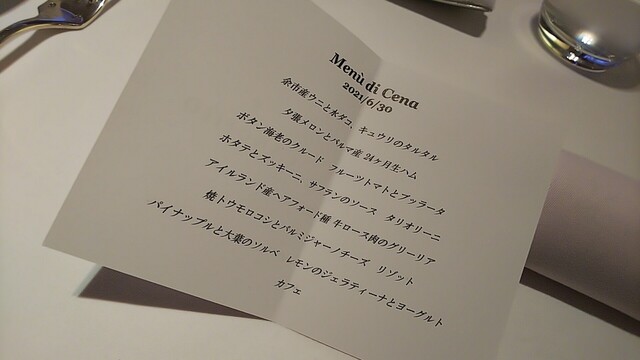 Menù di Cena
2021/6/30
余市産ウニと水ダコ、キュウリのタルタル
夕張メロンとパルマ産 24ヶ月生ハム
ボタン海老のクルード フルーツトマトとブッラータ
ホタテとズッキーニ、サフランのソース タリオリーニ
アイルランド産ヘアフォード種 牛ロース肉のグリーリア
焼トウモロコシとパルミジャーノチーズ リゾット
パイナップルと大葉のソルベ レモンのジェラティーナとヨーグルト
カフェ